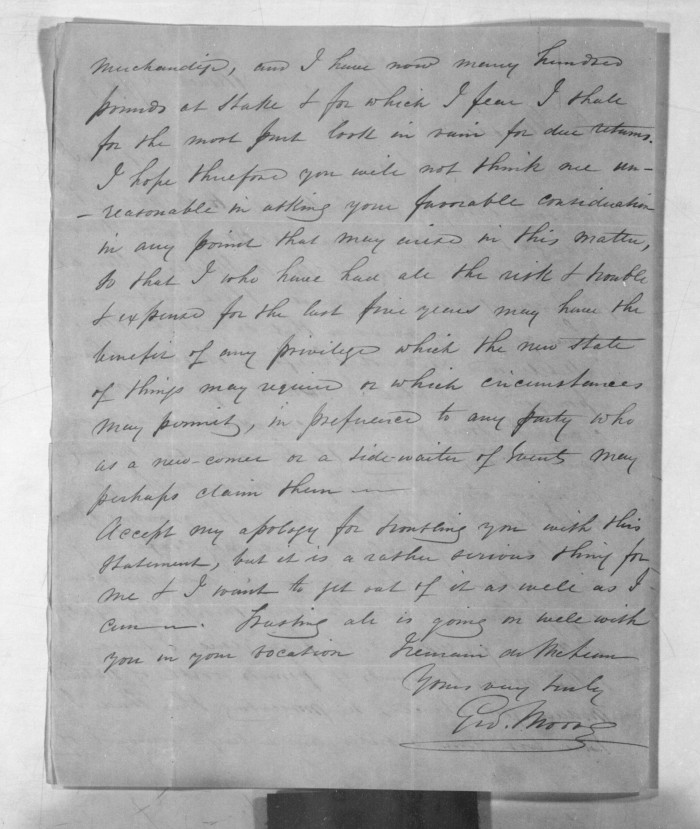 merchandise, and I have now many hundred
pounds at stake & for which I fear I shall
for the most part look in vain for due returns.
I hope therefore you will not think me un-
- reasonable in asking your favorable consideration
in any point that may arise in this matter,
so that I who have had all the risk & trouble
& expense for the last five years may have the
benefit of any privilege which the new state
of things may require or which circumstances
may permit, in preference to any party who
as a new-comer or a side-waiter of events may
perhaps claim them —
Accept my apology for troubling you with this
statement, but it is a rather serious thing for
me & I want to get out of it as well as I
can —. Trusting all is going on well with
you in your vocation I remain
Yours very truly
Geo. Moore